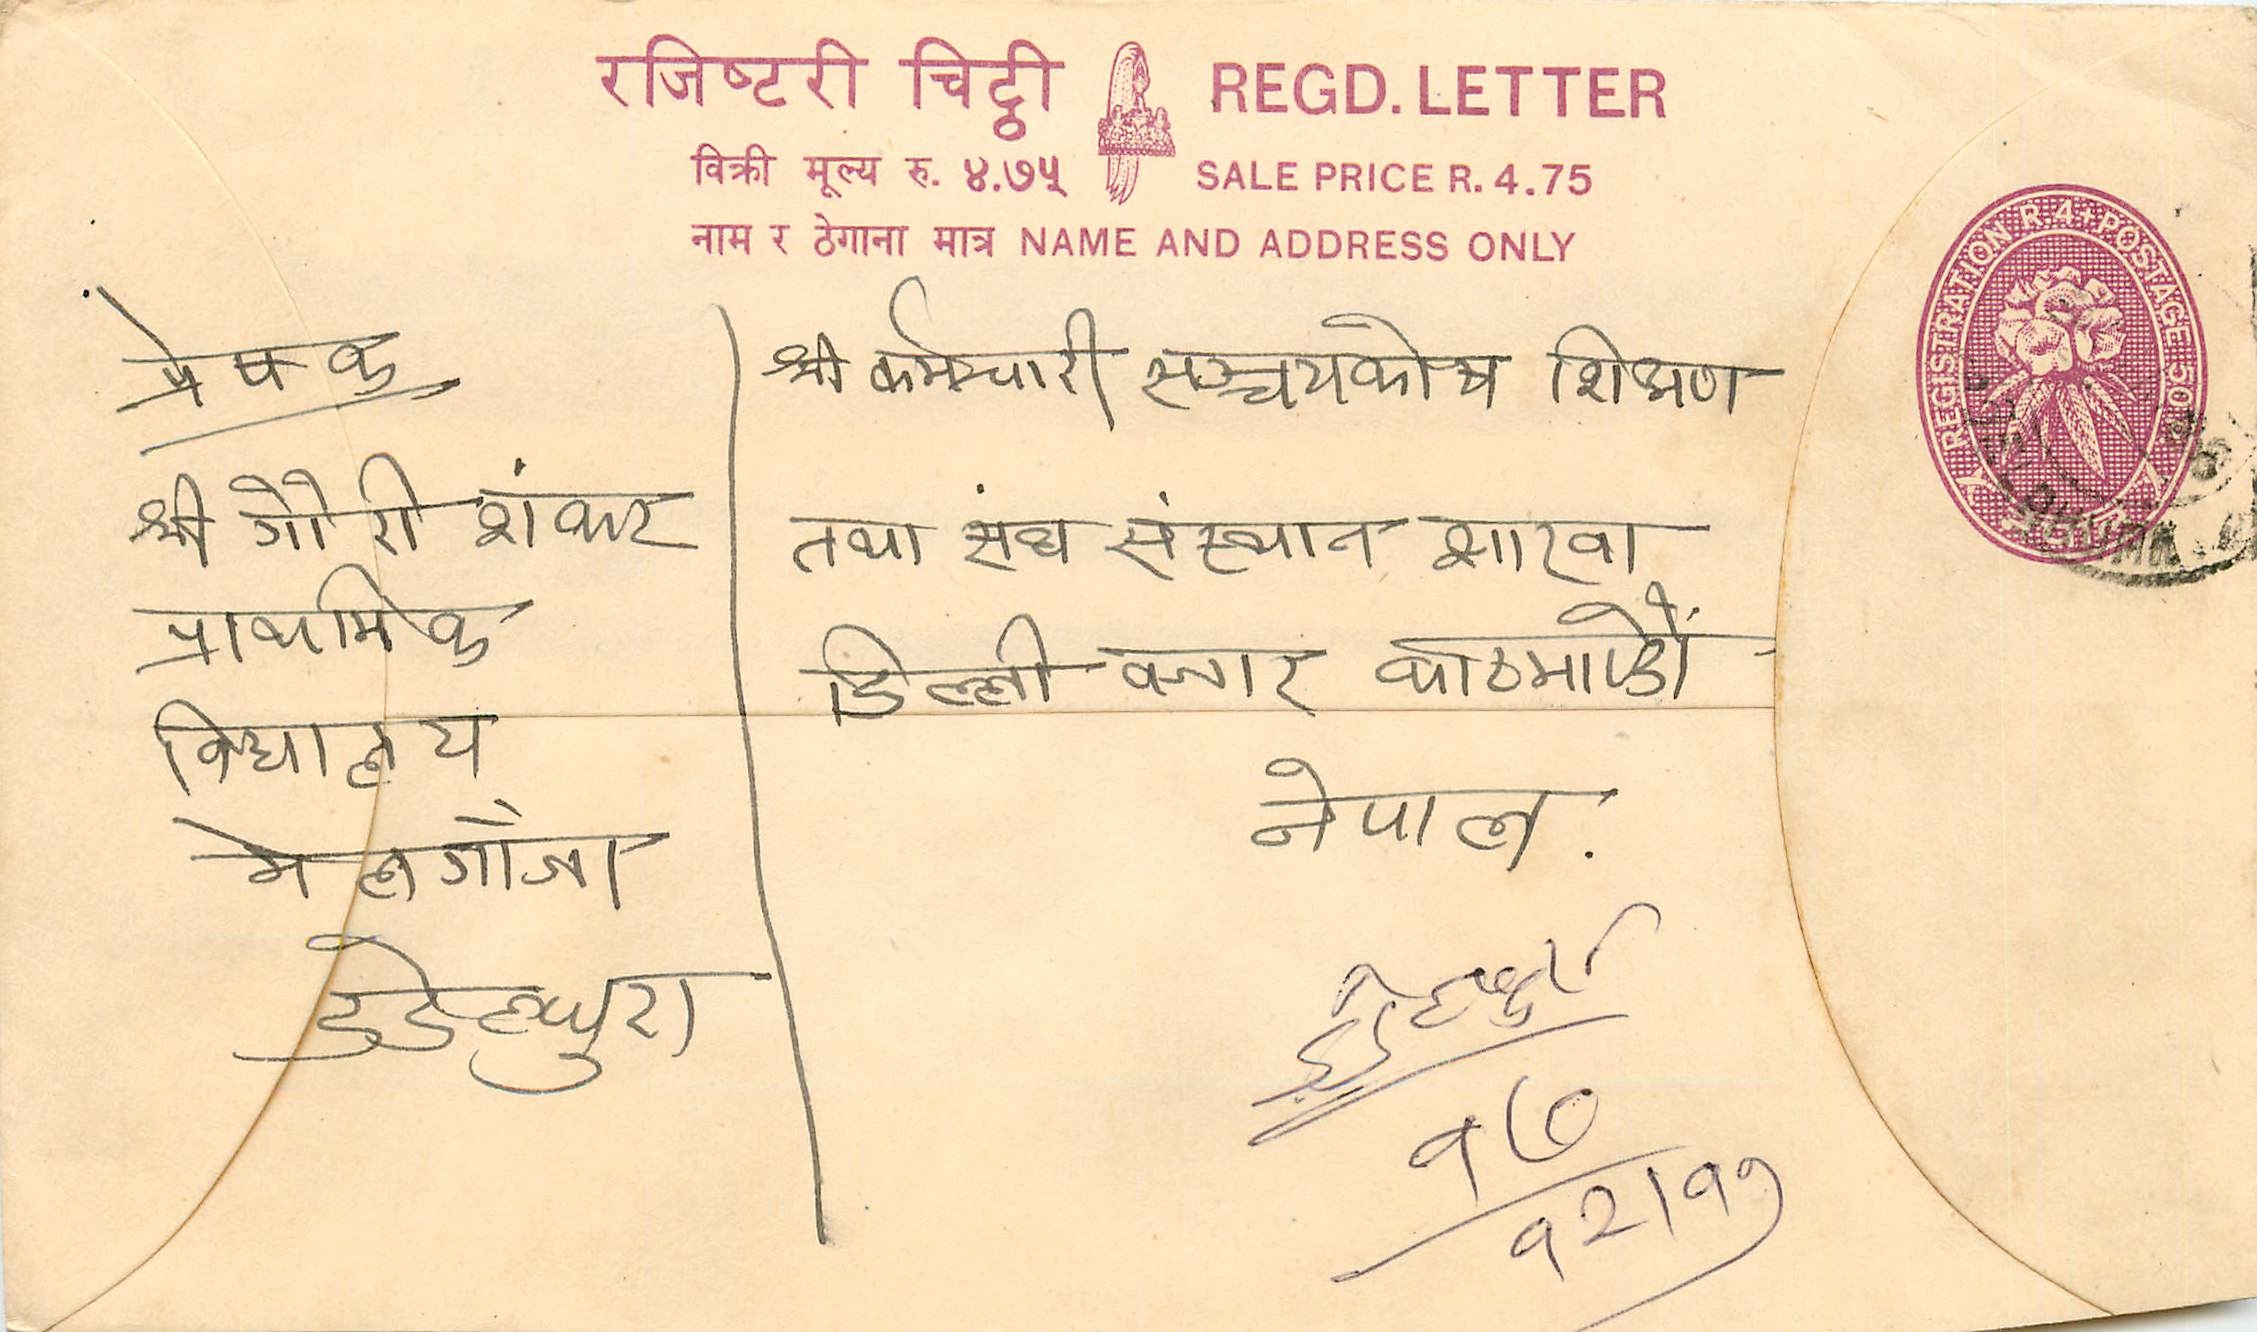 रजिष्टरी चिठ्ठी REGD. LETTER
विक्री मूल्य रु. ४.७५ SALE PRICE R. 4.75
नाम र ठेगाना मात्र NAME AND ADDRESS ONLY
REGISTRATION R.4+POSTAGE 50
प्रेषक
श्री गौरी शंकर
प्राथमिक
विद्यालय
मेलगाँजा
डडेल्धुरा
श्री कर्मचारी सञ्चयकोष शिक्षण
तथा संघ संस्थान शाखा
डिल्ली बजार काठमाण्डौं
नेपाल.
डडेल्धुरा
१७०
१२।१७